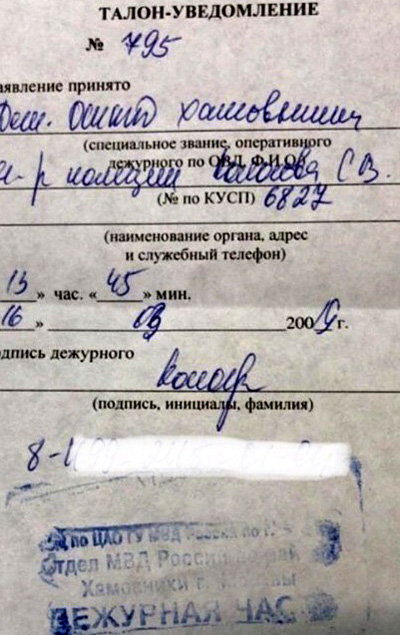 ТАЛОН-УВЕДОМЛЕНИЕ
№ 795
аявление принято
(специальное звание, оперативного
дежурного по ОВД, Ф.И.О.)
полиции С В.
(№ по КУСП) 6827
(наименование органа, адрес
и служебный телефон)
13 » час. « 45 » мин.
16 » 09 200 г.
одпись дежурного
(подпись, инициалы, фамилия)
8-
по ЦАО ГУ МВД России по г.
Отдел МВД России по рай
Хамовники г. Москвы
ДЕЖУРНАЯ ЧАС